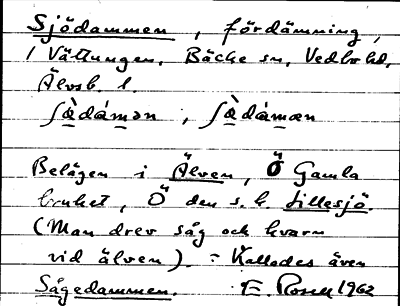 Sjödammen, fördämning,
i Vättungen, Bäcke sn, Vedbo hd,
Älvsb. l.
ʃø̀dámən, ʃø̀dámæn
Belägen i Älven, Ö Gamla
bruket, Ö den s.k. Lillesjö.
(Man drev såg och kvarn
vid älven). = Kallades även
Sågedammen. E. Rosell 1962